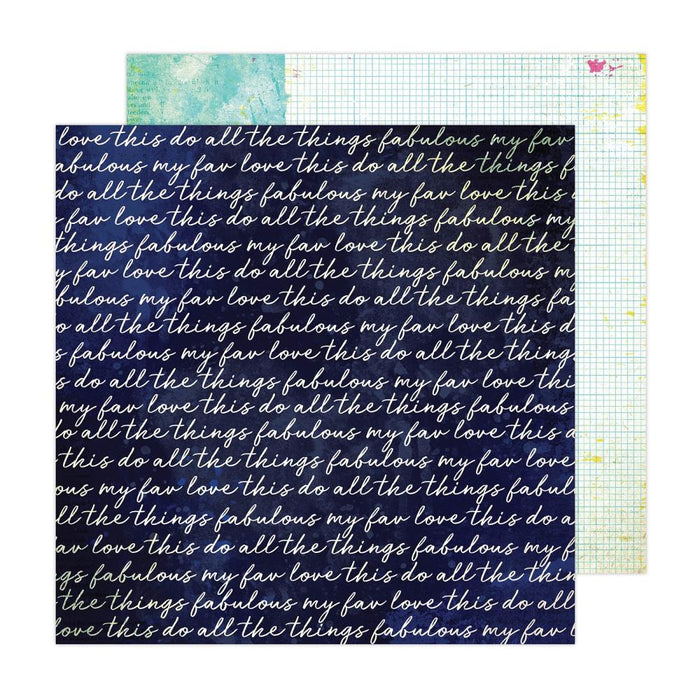 love this do all the things fabulous my fav
abulous my fav love this do all the things f
do all the things fabulous my fav love this
s fabulous my fav love this do all the thing
things fabulous my fav love this do all the
y fav love this do all the things fabulous m
bulous my fav love this do all the things fa
o all the things fabulous my fav love this d
s fabulous my fav love this do all the thing
is do all the things fabulous my fav love thi
my fav love this do all the things fabulous
do all the things fabulous my fav love this d
this do all the things fabulous my fav love
ous my fav love this do all the things fabul
ll the things fabulous my fav love this do a
av love this do all the things fabulous my f
gs fabulous my fav love this do all the thin
the things fabulous my fav love this do all
love this do all the things fabulous my fav